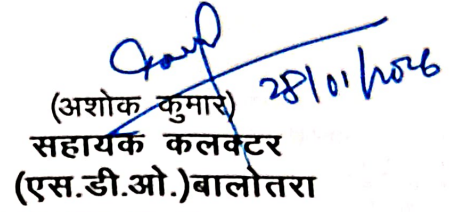 28/01/2026
(अशोक कुमार)
सहायक कलक्टर
(एस.डी.ओ.)बालोतरा